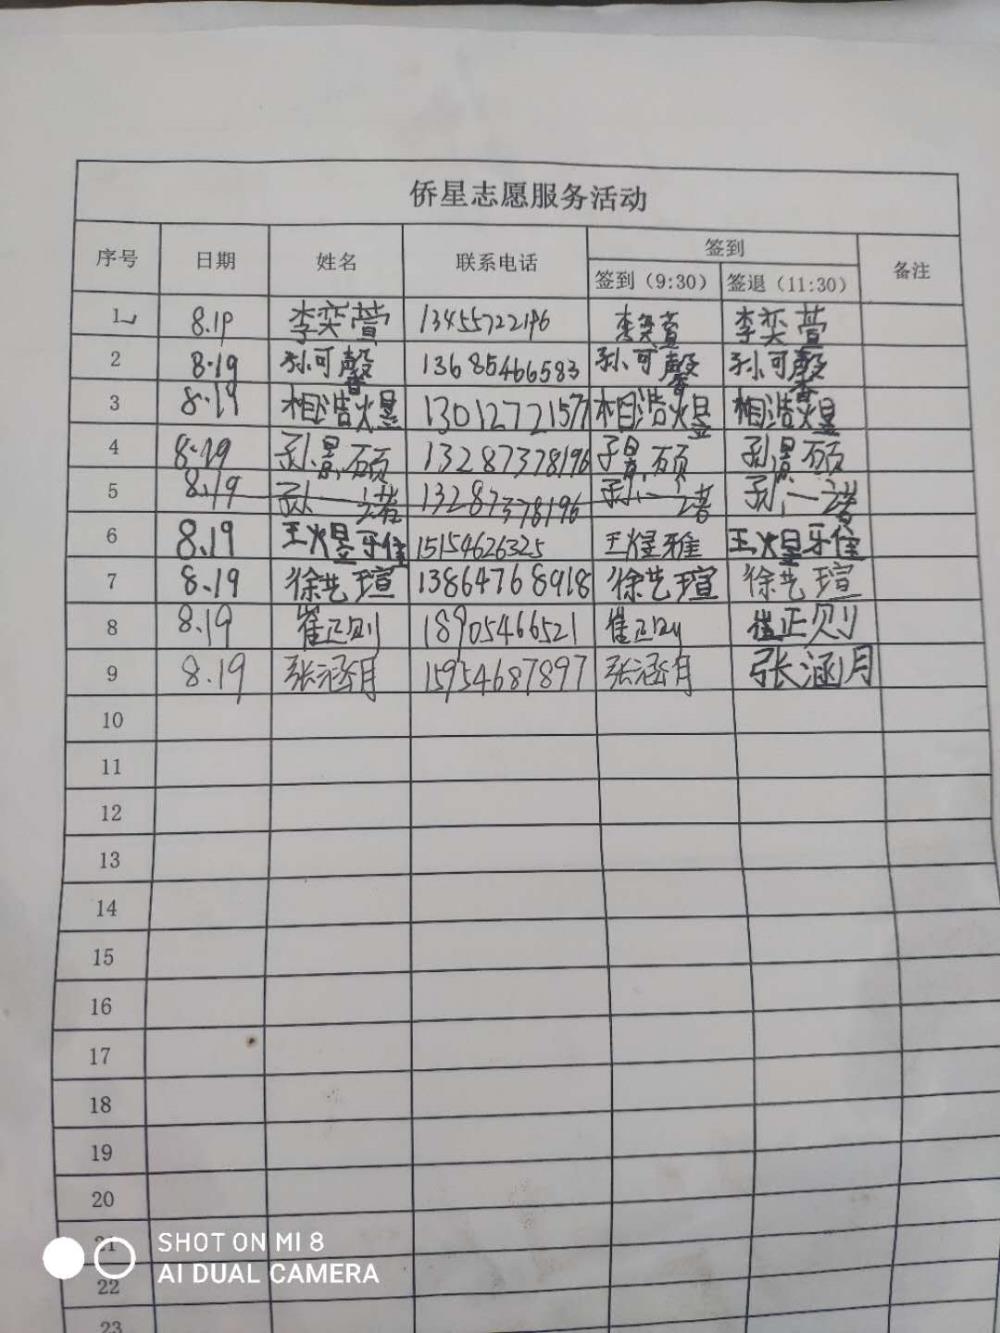 侨星志愿服务活动
序号 日期 姓名 联系电话 签到 备注
签到（9:30） 签退（11:30）
1 8.19 李奕萱 13455722196 李奕萱 李奕萱
2 8.19 孙可馨 13685466583 孙可馨 孙可馨
3 8.19 相浩煜 13012721577 相浩煜 相浩煜
4 8.19 孙景硕 13287378196 孙景硕 孙景硕
5 8.19 孙一诺 13287378196 孙一诺 孙一诺
6 8.19 王煜雅 15154626325 王煜雅 王煜雅
7 8.19 徐艺瑄 13864768918 徐艺瑄 徐艺瑄
8 8.19 崔正则 18905466521 崔正则 崔正则
9 8.19 张涵月 15954687897 张涵月 张涵月
10
11
12
13
14
15
16
17
18
19
20
21
22
23
SHOT ON MI 8
AI DUAL CAMERA